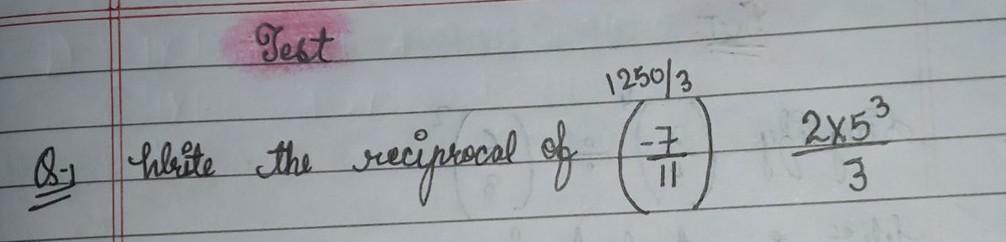 Test
Q-1 Write the reciprocal of (-7/11)^1250/3 2×5^3/3